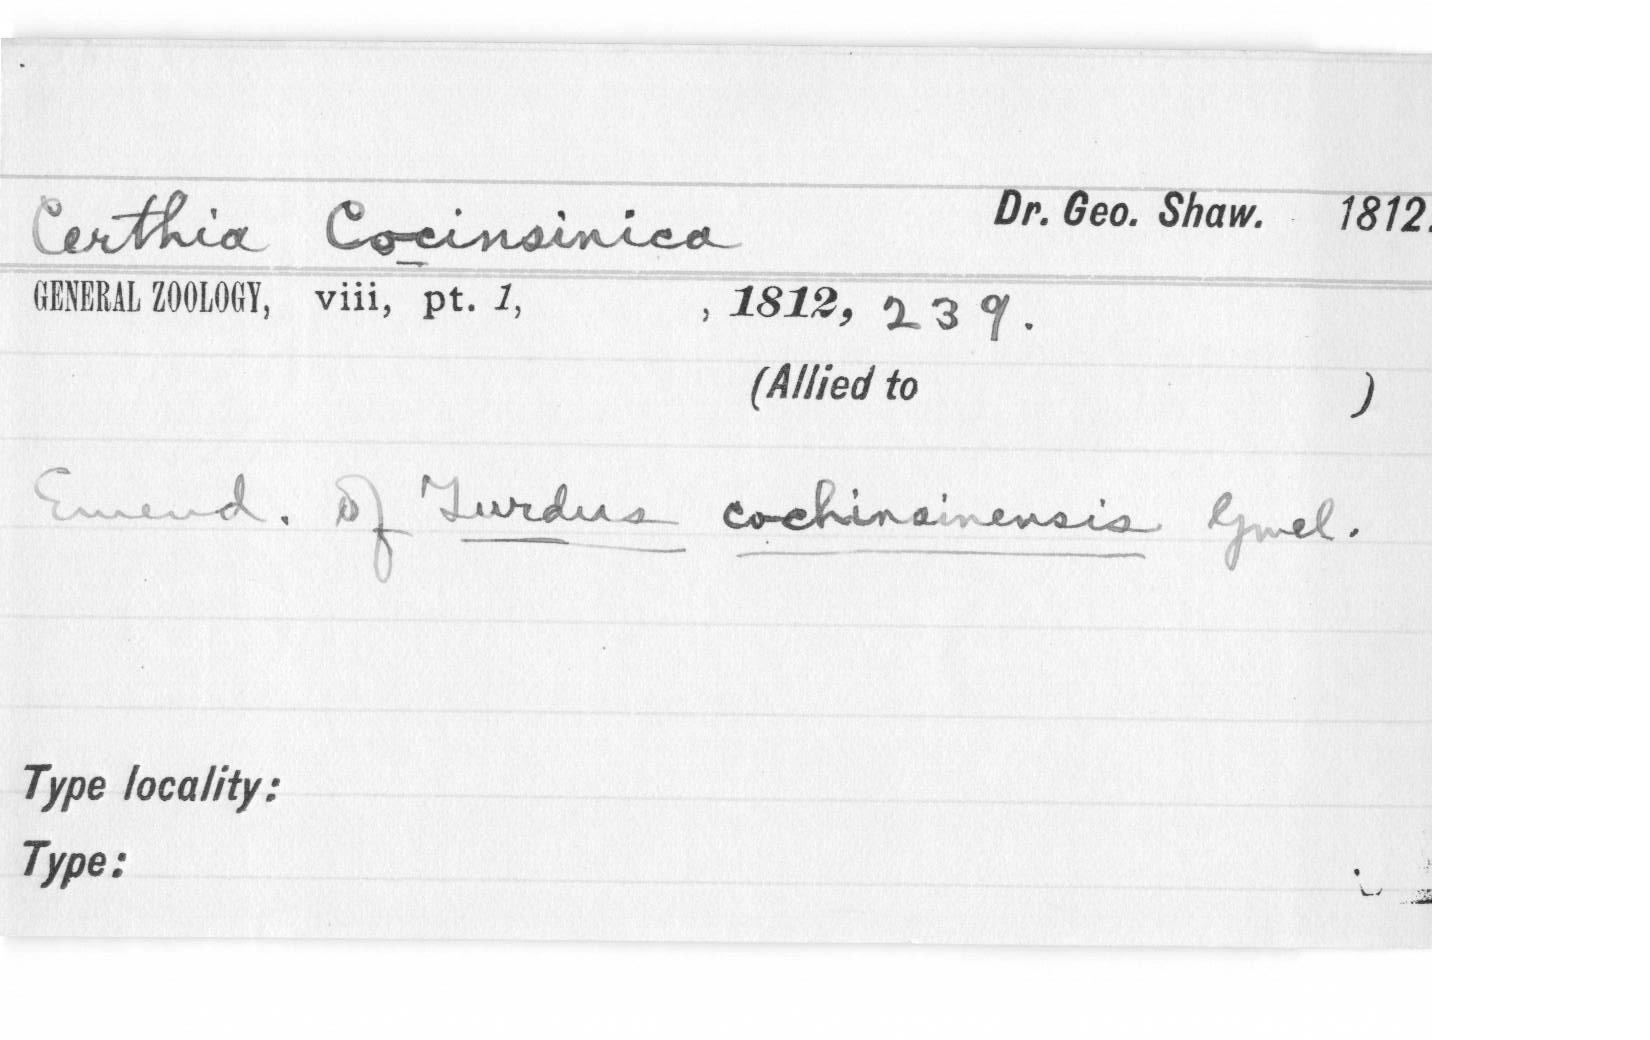 Certhia Cocinsinica Dr. Geo. Shaw. 1812.
GENERAL ZOOLOGY, viii, pt. 1, , 1812, 239.
(Allied to )
Emend. of Turdus cochinsinensis Gmel.
Type locality:
Type: